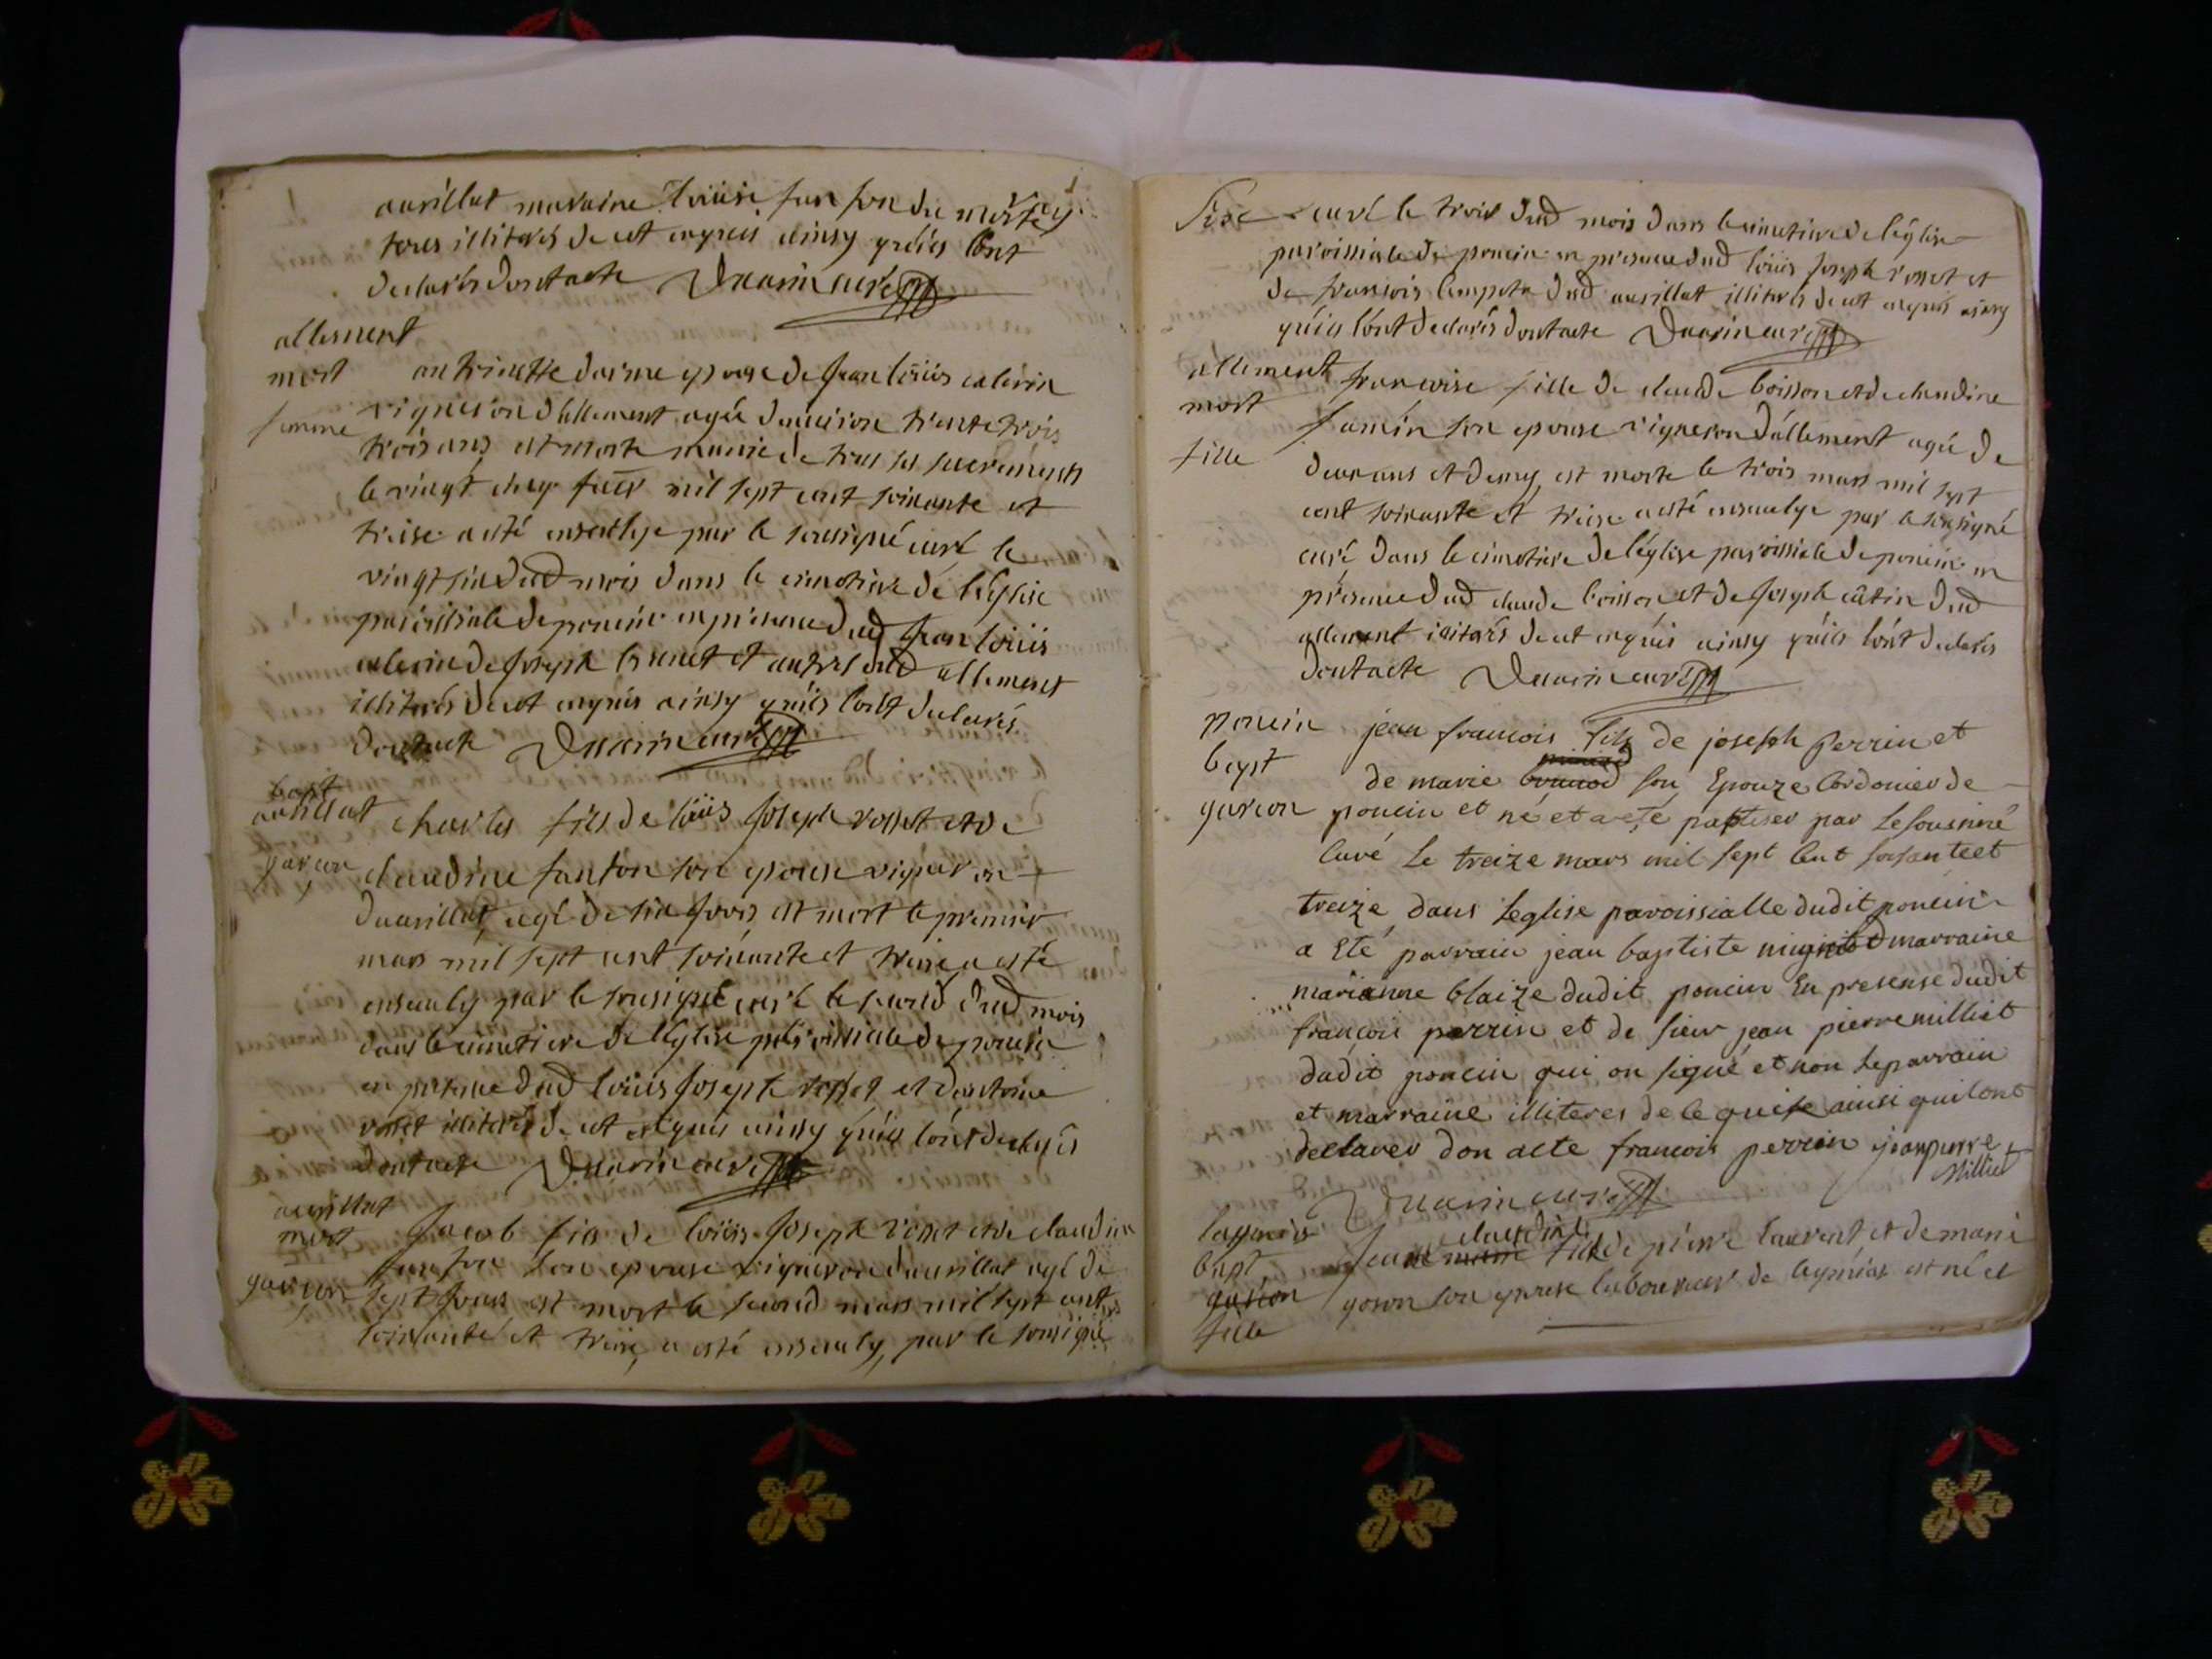 avrillat maraine loüise fanton du
tous illiterés de cet enquis ainsy quils l'ont
declarés dont acte Duarin curé
allement
mort anthoinette darme epouse de Jean loüis calerin
femme vigneron d'allement agée denviron trente trois
trois ans est morte munie de tous ses sacrements
le vingt cinq fevr mil sept cent soixante et
treise a esté ensevelye par le sousigné curé le
vingt six dud mois dans le cimetiere de l'eglise
paroissiale de poncin en presence dud Jean loüis
calerin de Joseph brunet et autres dud allement
illiterés de cet enquis ainsy quils l'ont declarés
dont acte Duarin curé
bapt
avrillat charles fils de loüis Joseph rosset et de
garçon claudine fanton son epouse vigneron
d'avrillat agé de six jours est mort le premier
mars mil sept cent soixante et treise a esté
ensevely par le sousigné curé le second dud mois
dans le cimetiere de l'eglise paroissiale de poncin
en presence dud loüis Joseph rosset et d'antoine
rosset illiterés de cet enquis ainsy quils l'ont declarés
dont acte Duarin curé
avrillat
mort Jacob fils de loüis Joseph rosset et de claudine
fanton son epouse vigneron d'avrillat agé de
garçon sept jours est mort le second mars mil sept cent
soixante et treise, a esté ensevely, par le sousigné
curé le trois dud mois dans le cimetiere de l'eglise
paroissiale de poncin en presence dud loüis Joseph rosset et
de francois dud avrillat illiterés de cet enquis ainsy
quils l'ont declarés dont acte Duarin curé
allement francoise fille de claude boisson et de claudine
mort Jamin son epouse vigneron d'allement agée de
fille deux ans et demy est morte le trois mars mil sept
cent soixante et treise a esté ensevelye par le sousigné
curé dans le cimetiere de l'eglise paroissiale de poncin en
presence dud claude boisson et de Joseph câtin dud
allement illiterés de cet enquis ainsy quils l'ont declarés
dont acte Duarin curé
poncin jean francois fils de joseph perrin et
bapt de marie son Epouze Cordonier de
garcon poncin et né et a eté paptiser par Le sousiné
Curé Le treize mars mil sept Cent soisante et
treize dans Leglise paroissialle dudit poncin
a Eté parrain jean baptiste marraine
marianne blaize dudit poncin En presense dudit
francois perrin et de sieur jean pierre milliet
dudit poncin qui on signé et non Le parrain
et marraine illiteres de le quise ainsi quil ont
declarer don acte francois perrin jean pierre
Milliet
Duarin curé
claudine
bapt Jeane marie fille de pierre laurent et de marie
garcon goson son epouse laboureur de est né et
fille